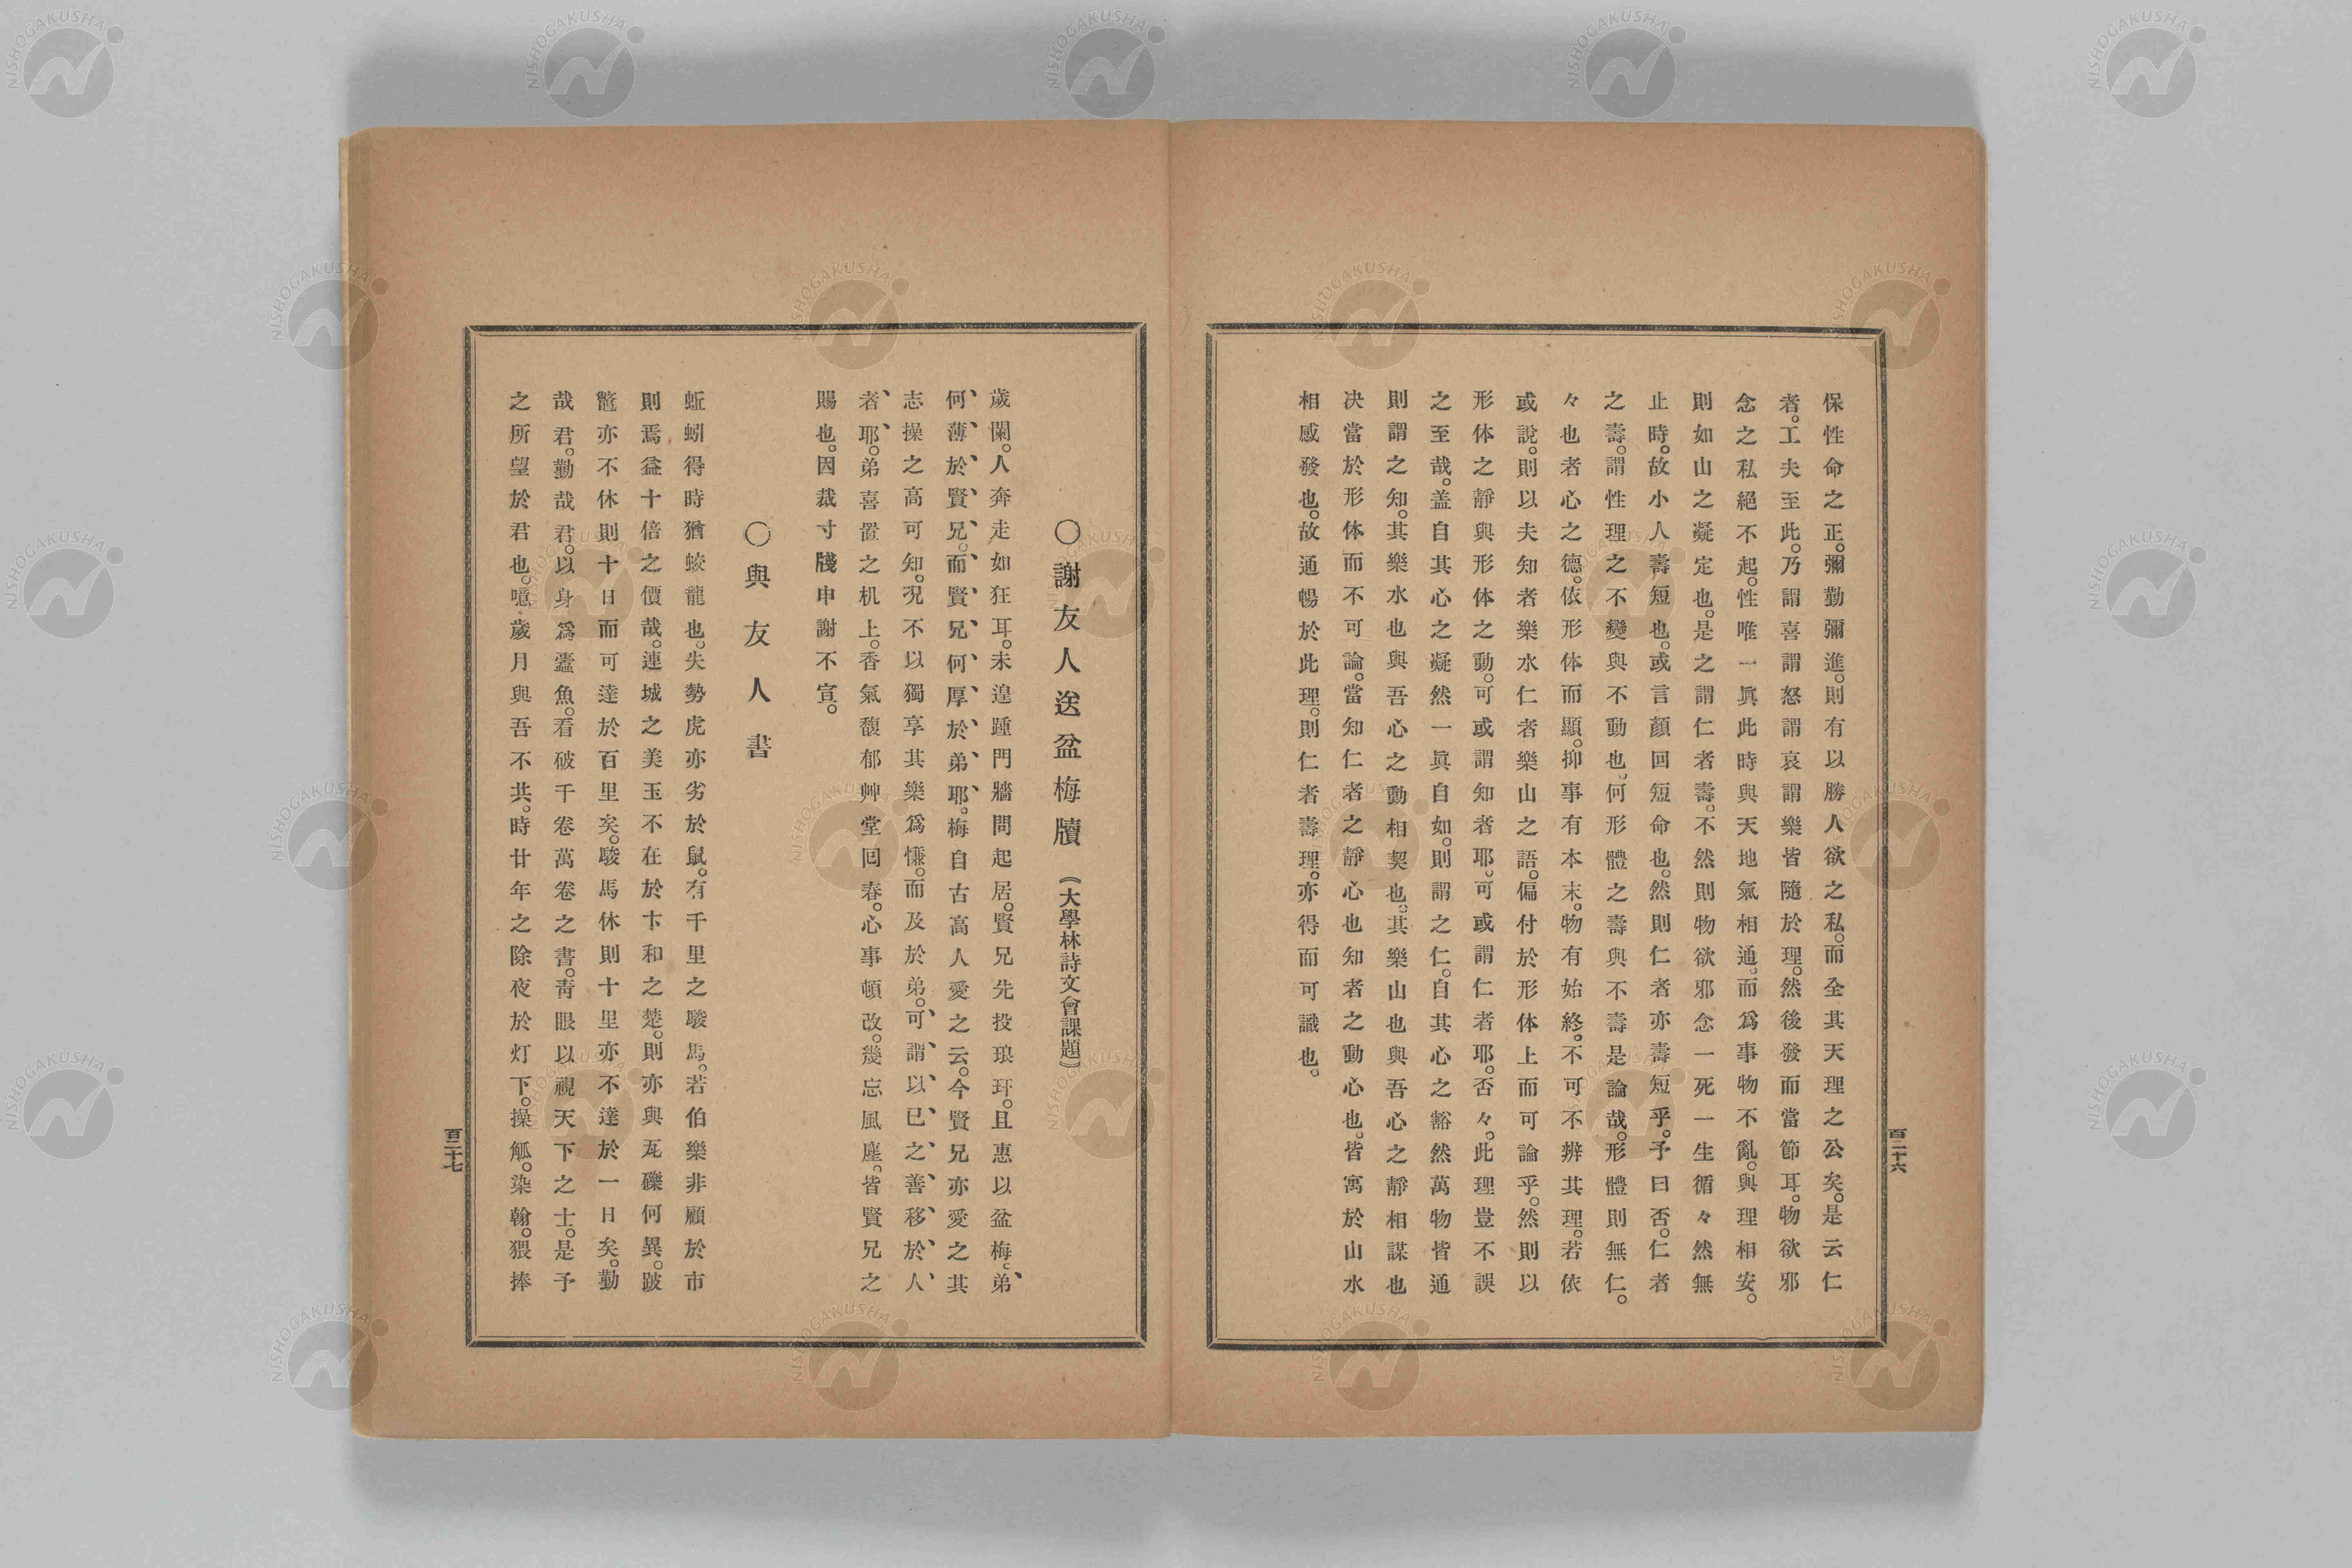 保性命之正。彌勤彌進。則有以勝人欲之私。而全其天理之公矣。是云仁
者。工夫至此。乃謂喜謂怒謂哀謂樂皆隨於理。然後發而當節耳。物欲邪
念之私絕不起。性唯一眞此時與天地氣相通。而爲事物不亂。與理相安。
則如山之凝定也。是之謂仁者壽。不然則物欲邪念一死一生循々然無
止時。故小人壽短也。或言顏回短命也。然則仁者亦壽短乎。予曰否。仁者
之壽。謂性理之不變與不動也。何形體之壽與不壽是論哉。形體則無仁。
々也者心之德。依形体而顯。抑事有本末。物有始終。不可不辨其理。若依
或說。則以夫知者樂水仁者樂山之語。偏付於形体上而可論乎。然則以
形体之靜與形体之動。可或謂知者耶。可或謂仁者耶。否々。此理豈不誤
之至哉。盖自其心之凝然一眞自如。則謂之仁。自其心之豁然萬物皆通
則謂之知。其樂水也與吾心之動相契也。其樂山也與吾心之靜相謀也
决當於形体而不可論。當知仁者之靜心也知者之動心也。皆寓於山水
相感發也。故通暢於此理。則仁者壽理。亦得而可識也。
百二十六
〇謝友人送盆梅牘（大學林詩文會課題）
歲闌。人奔走如狂耳。未遑踵門牆問起居。賢兄先投琅玕。且惠以盆梅。弟、
何、薄、於、賢、兄。而、賢、兄、何、厚、於、弟、耶。梅自古高人愛之云。今賢兄亦愛之其
志操之高可知。況不以獨享其樂爲慊。而及於弟。可、謂、以、已、之、善、移、於、人、
者、耶。弟喜置之机上。香氣馥郁艸堂回春。心事頓改。幾忘風塵。皆賢兄之
賜也。因裁寸牋申謝不宣。
〇與友人書
蚯蚓得時猶蛟龍也。失勢虎亦劣於鼠。有千里之駿馬。若伯樂非顧於市
則焉益十倍之價哉。連城之美玉不在於卞和之楚。則亦與瓦礫何異。跛
鼈亦不休則十日而可達於百里矣。駿馬休則十里亦不達於一日矣。勤
哉君。勤哉君。以身爲蠹魚。看破千卷萬卷之書。靑眼以視天下之士。是予
之所望於君也。噫歲月與吾不共。時廿年之除夜於灯下。操觚。染翰。猥捧
百二十七